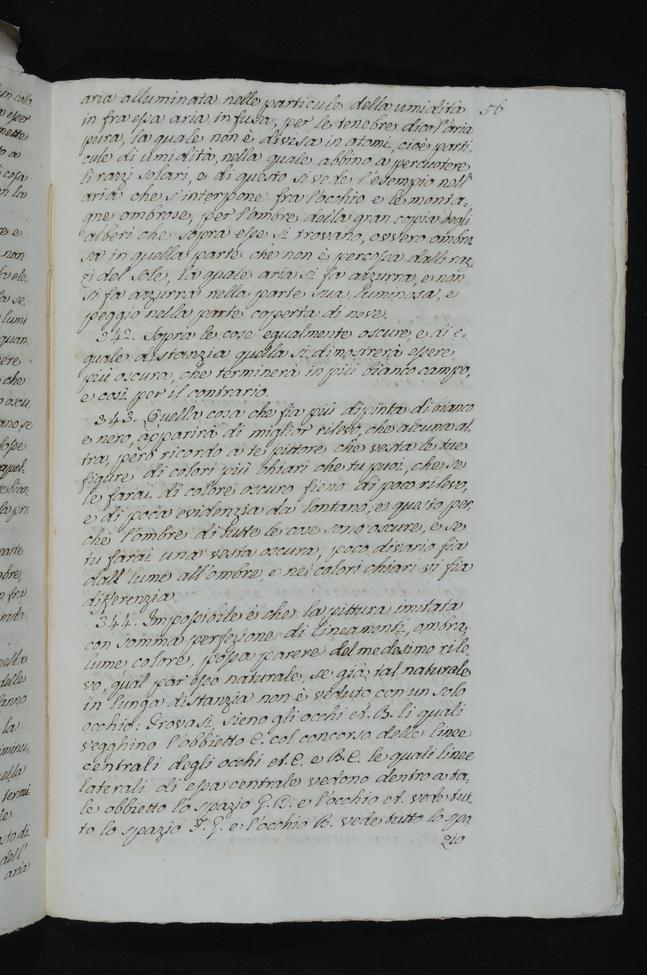 56
aria alluminata nelle particule della umidità
in fra essa aria infusa; per le tenebre dico l'aria
pura, la quale non è divisa in atomi, cioè parti
cule di umidità, nella quale abbino a percuotere
li razzi solari, e di questo si vede l'esempio nell'
aria che s'interpone fra l'occhio e le monta=
gne ombrose, per l'ombre della gran copia degli
alberi che sopra esse si trovano, ovvero ombro
sa in quella parte che non è percossa dalli raz
zi del sole, la quale aria si fa azzurra, e non
si fa azzurra nella parte sua luminosa, e
peggio nella parte coperta di neve.
342. Sopra le cose egualmente oscure, e di e=
guale distanzia quella si dimostrerà essere
più oscura, che terminerà in più bianco campo,
e così per il contrario.
343. Quella cosa che fia più dipinta di bianco
e nero, apparirà di miglior rilevo, che alcuna al
tra, però ricordo a te pittore che vesta le tue
figure di colori più chiari che tu puoi, che se
le farai di colore oscuro fieno di poco rilevo,
e di poca evidenzia da lontano, e questo per
chè l'ombre di tutte le cose sono oscure, e se
tu farai una vesta oscura, poco divario fia
dall'lume all'ombre, e nei colori chiari vi fia
differenzia.
344. Impossibile è che la pittura imitata
con somma perfezione di lineamenti, ombra,
lume colore, possa parere del medesimo rile
vo, qual par esso naturale, se già tal naturale
in lunga distanzia non è veduto con un solo
occhio: Provasi, sieno gli occhi A. B. li quali
vegghino l'obbietto C. col concorso delle linee
centrali degli occhi A. C. e B. C. le quali linee
laterali di essa centrale vedono dentro a ta
le obbietto lo spazio G. D. e l'occhio A. vede tut
to lo spazio F. G. e l'occhio B. vede tutto lo spa
zio